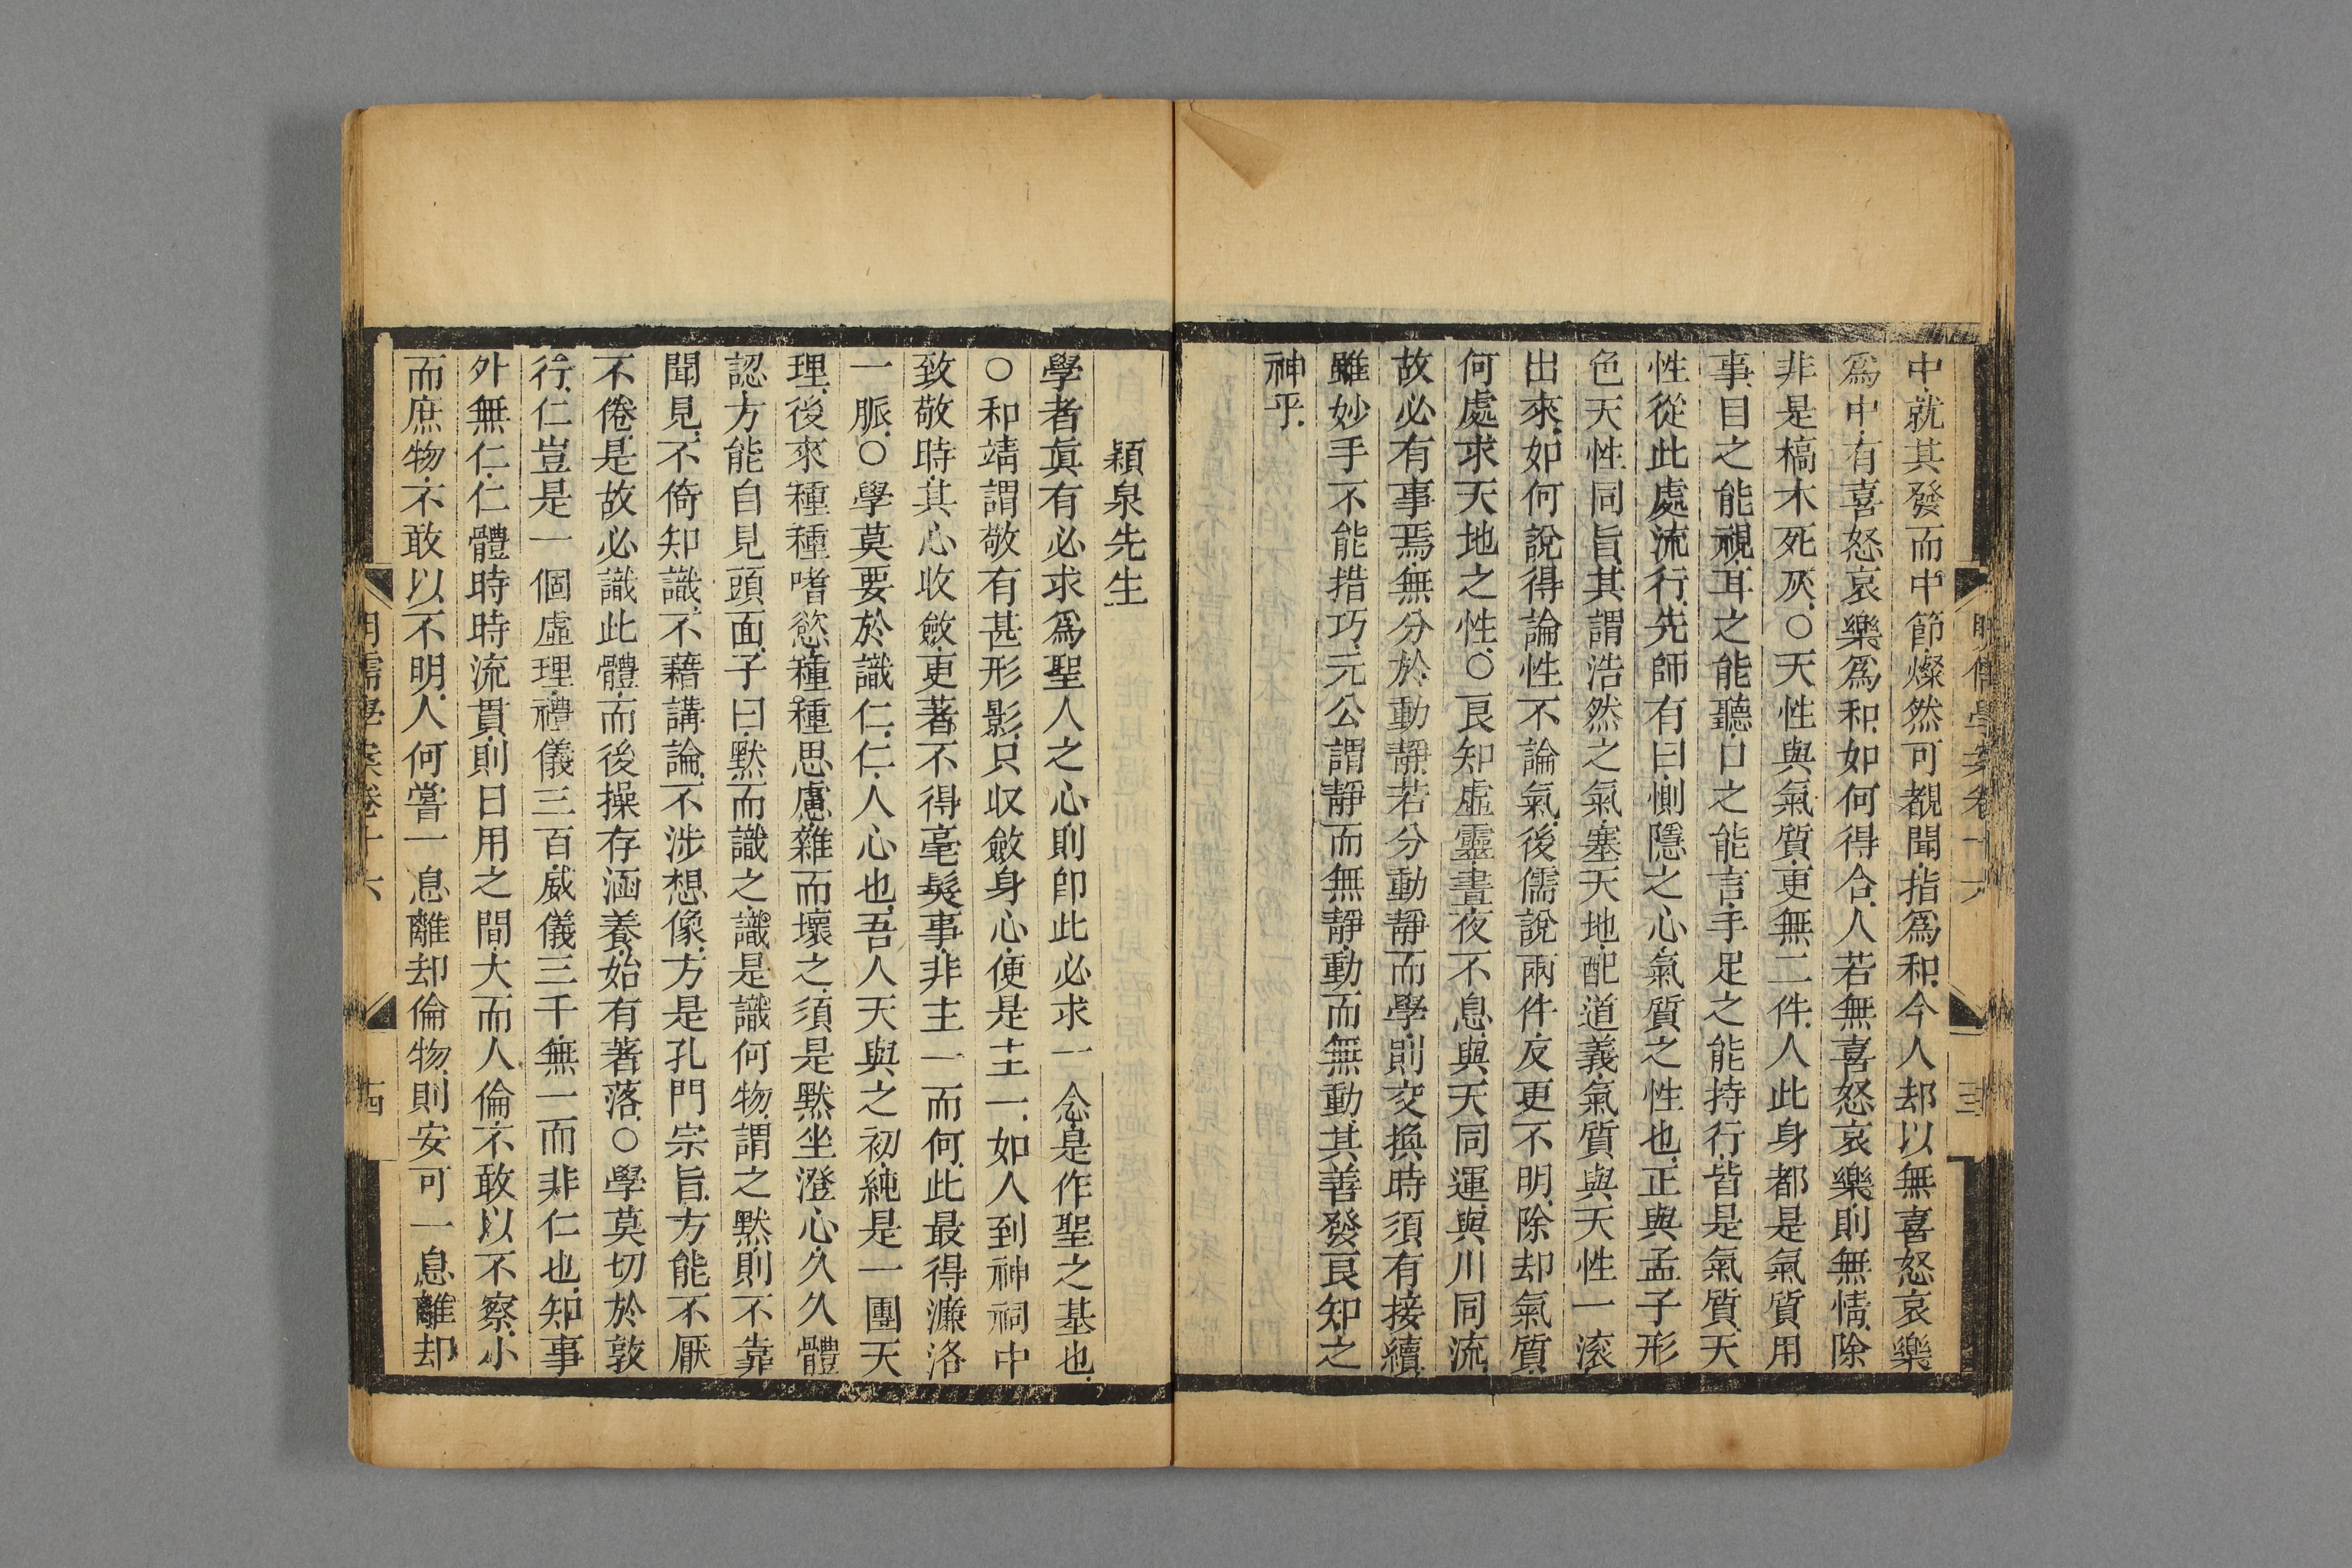 中就其發而中節燦然可覩聞指爲和今人却以無喜怒哀樂
爲中有喜怒哀樂爲和如何得合人若無喜怒哀樂則無情除
非是槁木死灰○天性與氣質更無二件人此身都是氣質用
事目之能視耳之能聽口之能言手足之能持行皆是氣質天
性從此處流行先師有曰惻隱之心氣質之性也正與孟子形
色天性同旨其謂浩然之氣塞天地配道義氣質與天性一滚
出來如何說得論性不論氣後儒說兩件反更不明除却氣質
何處求天地之性○良知虛靈晝夜不息與天同運與川同流
故必有事焉無分於動靜若分動靜而學則交換時須有接續
雖妙手不能措巧元公謂靜而無靜動而無動其善發良知之
神乎
穎泉先生
學者眞有必求爲聖人之心則卽此必求一念是作聖之基也
○和靖謂敬有甚形影只収斂身心便是主一如人到神祠中
致敬時其心收斂更著不得毫髮事非主一而何此最得濂洛
一脈○學莫要於識仁仁人心也吾人天與之初純是一團天
理後來種種嗜慾種種思慮雜而壞之須是默坐澄心久久體
認方能自見頭面子曰默而識之識是識何物謂之默則不靠
聞見不倚知識不藉講論不涉想像方是孔門宗旨方能不厭
不倦是故必識此體而後操存涵養始有著落○學莫切於敦
行仁豈是一個虛理禮儀三百威儀三千無一而非仁也知事
外無仁仁體時時流貫則日用之間大而人倫不敢以不察小
而庶物不敢以不明人何嘗一息離却倫物則安可一息離却
明儒學案卷十六
十四